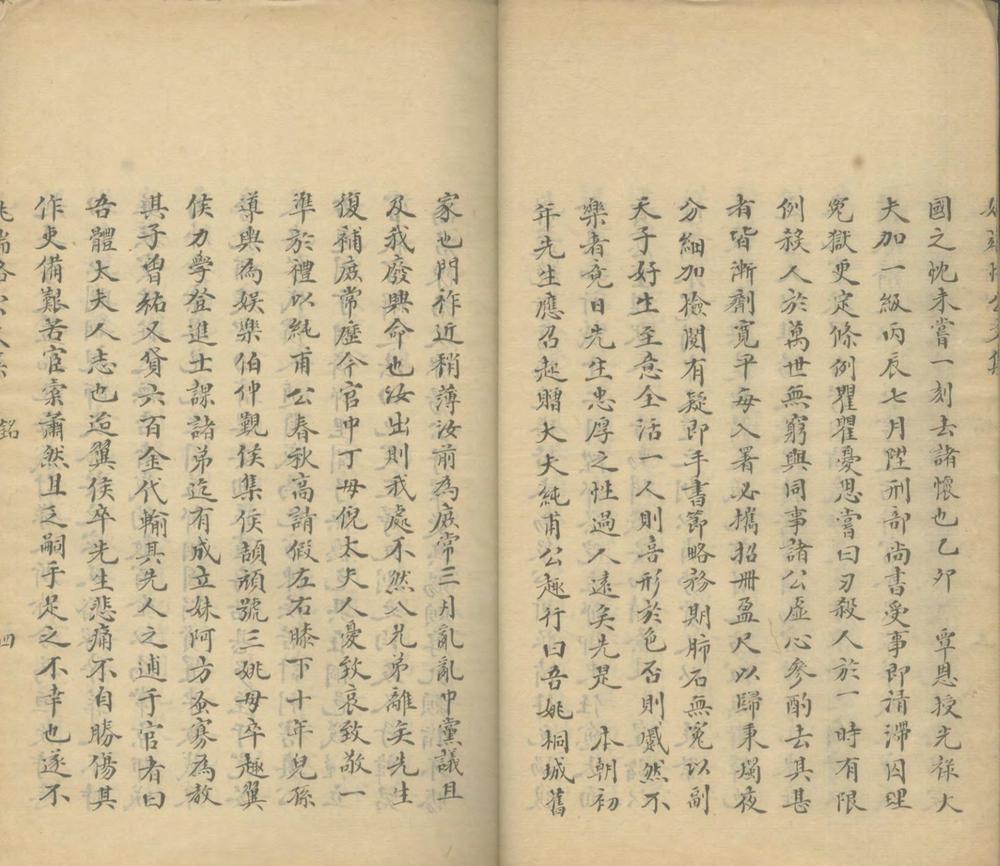 國之忱未嘗一刻去諸懷也乙夘　覃恩授光禄大
夫加一級丙辰七月陞刑部尚書受事即清滯囚理
冤獄更定條例瞿瞿憂思嘗曰刃殺人於一時有限
例殺人於萬世無窮與同事諸公虛心參酌去其甚
者皆漸劑寬平每入署必攜招冊盈尺以歸秉燭夜
分細加檢閱有疑即手書節略務期肺石無冤以副
天子好生至意全活一人則喜形於色否則戚然不
樂者竟日先生忠厚之性過人遠矣先是　本朝初
年先生應召起贈大夫純甫公趣行曰吾姚桐城舊
家也門祚近稍薄汝前為庶常三月亂亂中黨議且
及我廢興命也汝出則我處不然八兄弟離矣先生
復補庶常歷今官中丁母倪太夫人憂致哀致敬一
準於禮以純甫公春秋高請假左右膝下十年兒孫
導輿為娛樂伯仲覲侯集侯頡頏號三姚母卒趣翼
侯力學登進士課諸弟迄有成立妹阿方蚤寡為教
其子曾祐又貸六百金代輸其先人之逋于官者曰
吾體大夫人志也迨翼侯卒先生悲痛不自勝傷其
作吏備艱苦宦橐蕭然且乏嗣手足之不幸也遂不
姚端恪公文集　銘　四